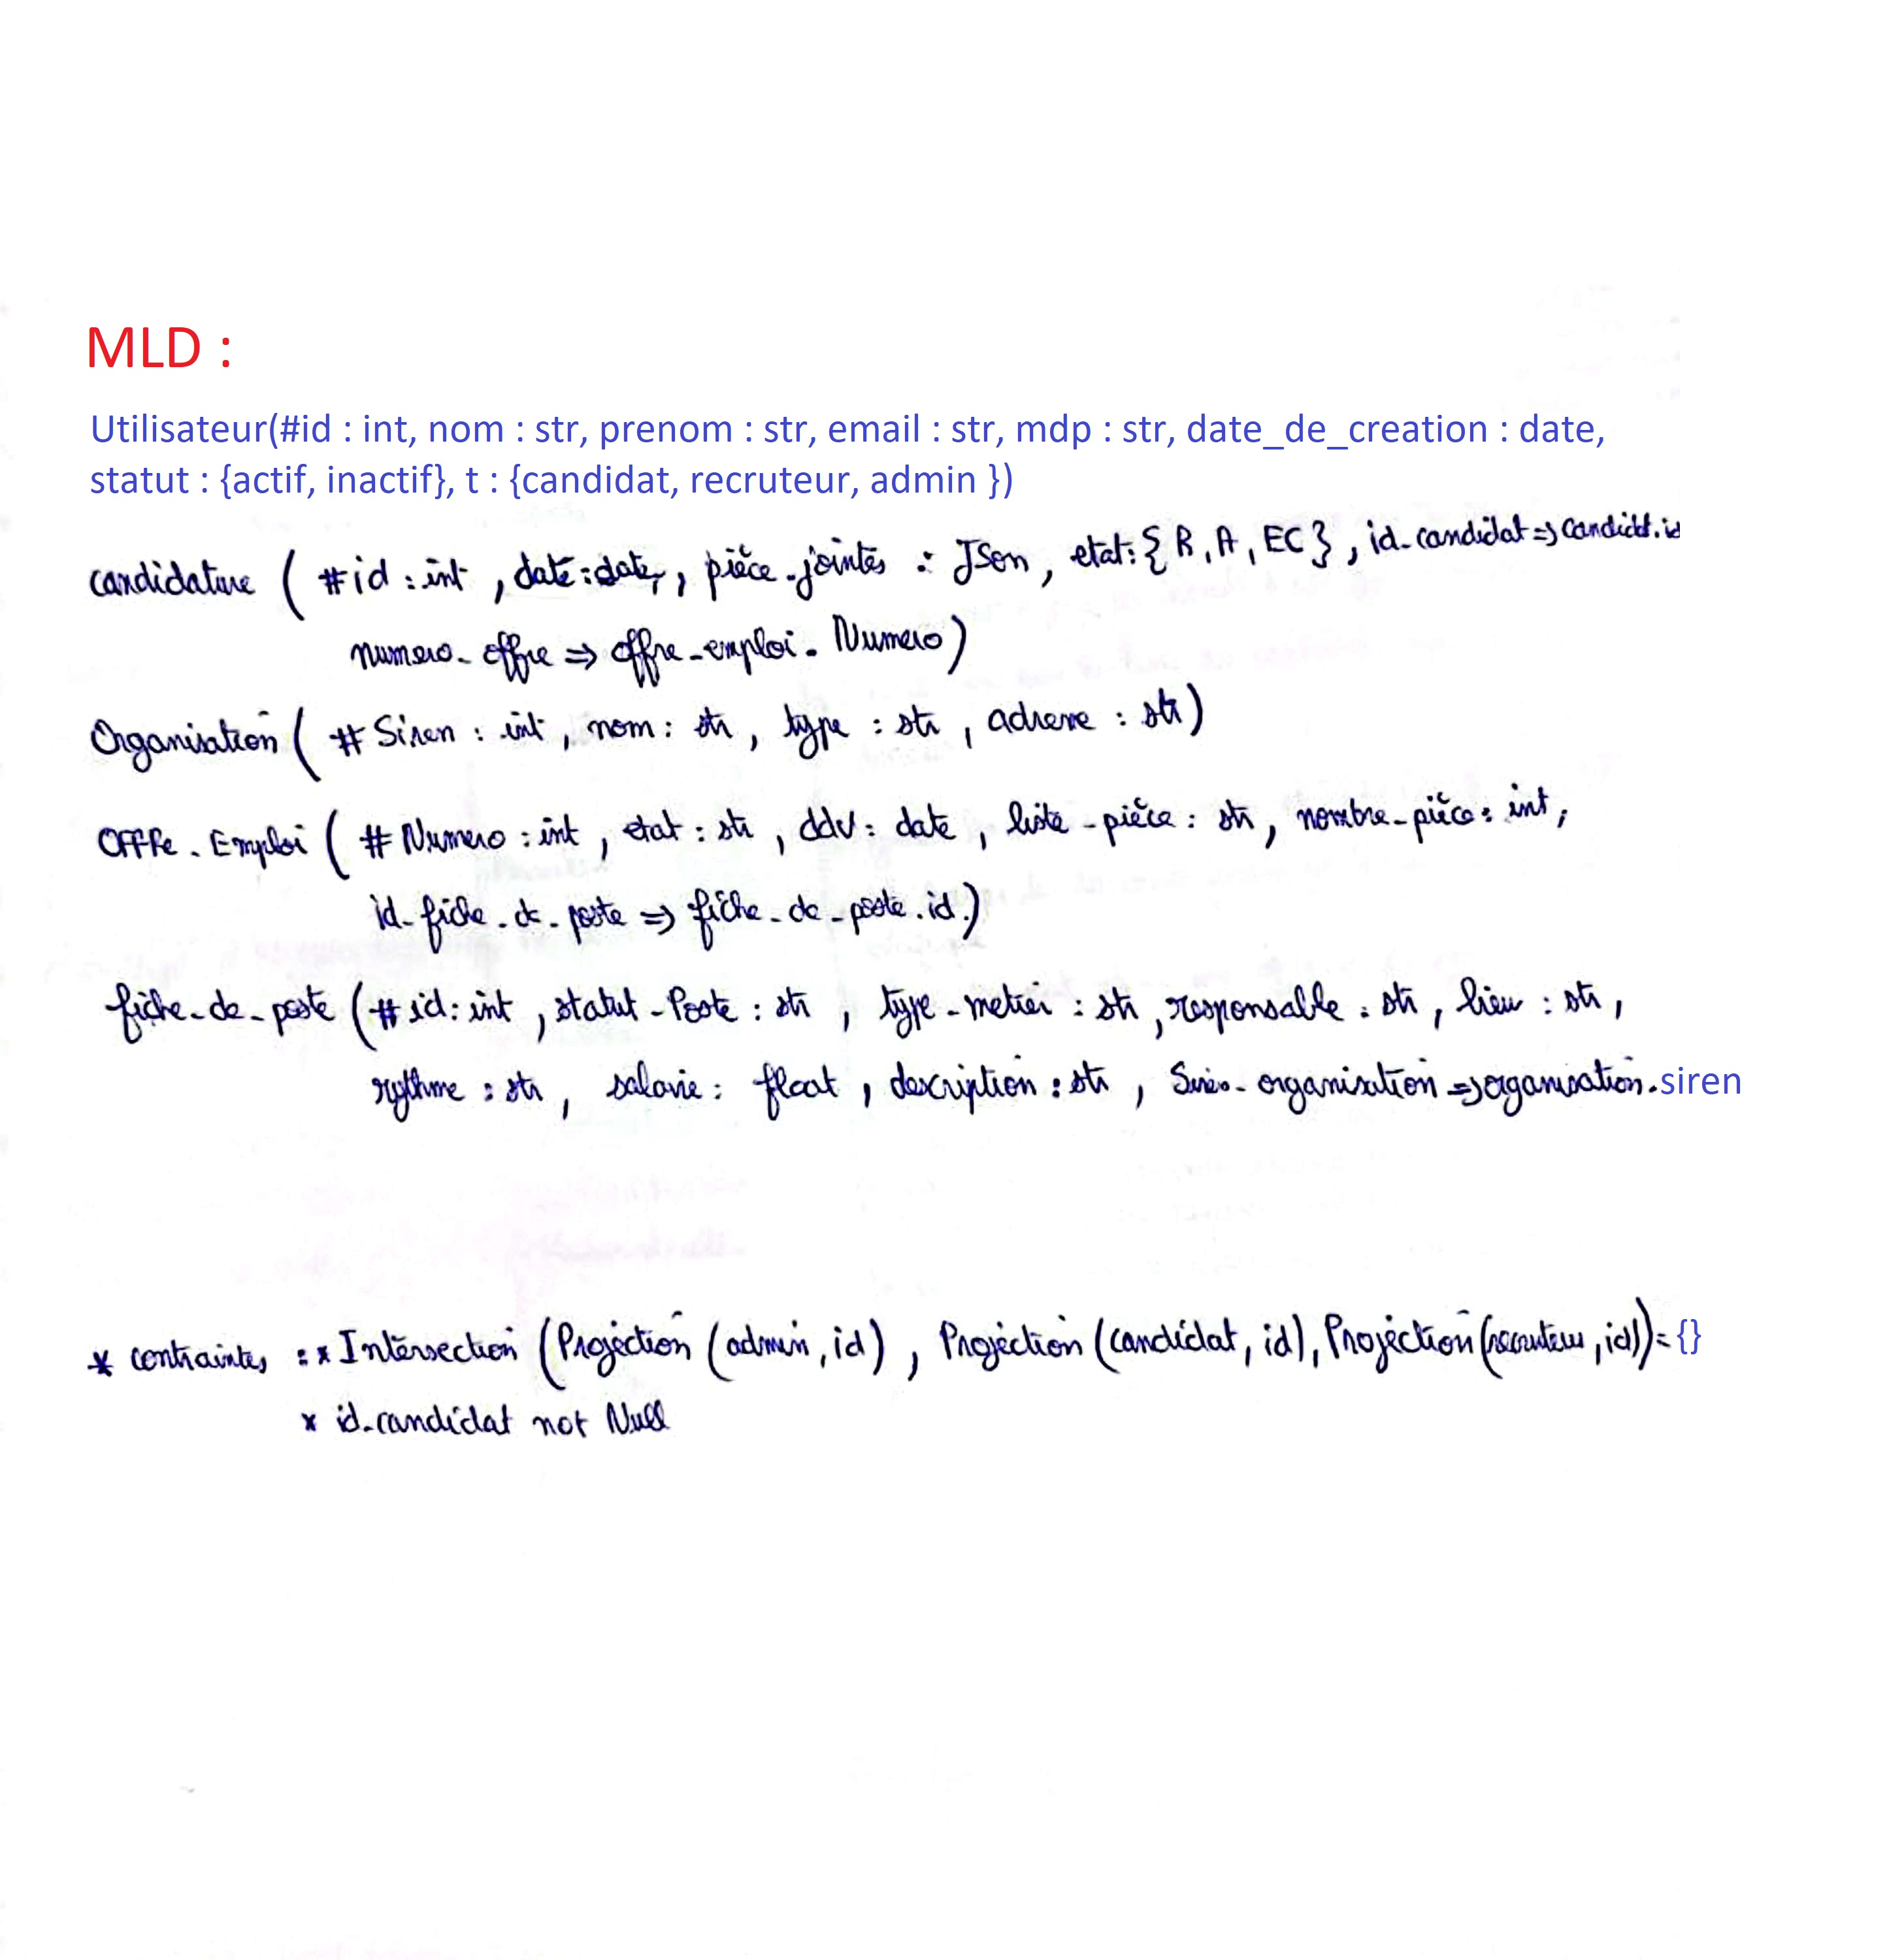 MLD :
Utilisateur(#id : int, nom : str, prenom : str, email : str, mdp : str, date_de_creation : date,
statut : {actif, inactif}, t : {candidat, recruteur, admin })
candidature ( #id : int , date : date , pièce_jointes : JSon , etat : { R , A , EC } , id_candidat => Candidat.id
numero_offre => offre_emploi. Numero)
Organisation ( # Siren : int , nom : str , type : str , adresse : str)
OFFRe_Emploi ( # Numero : int , etat : str , ddv : date , liste_pièce : str , nombre_pièce : int ,
id_fiche_de_poste => fiche_de_poste.id)
fiche_de_poste (# id : int , statut_Poste : str , type_metier : str , responsable : str , lieu : str ,
rythme : str , salarie : float , description : str , organisation => organisation.siren
* contraintes : * Intersection (Projection (admin, id) , Projection (candidat, id), Projection (recruteur, id)) = {}
* id_candidat not Null